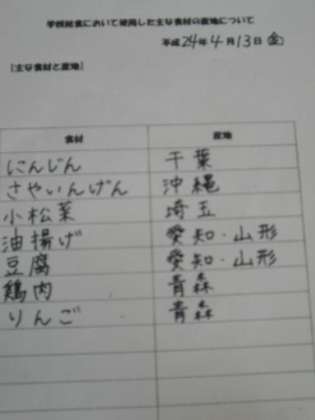 学校給食において使用した主な食材の産地について
平成24年4月13日(金)
[主な食材と産地]
食材 産地
にんじん 千葉
さやいんげん 沖縄
小松菜 埼玉
油揚げ 愛知・山形
豆腐 愛知・山形
鶏肉 青森
りんご 青森